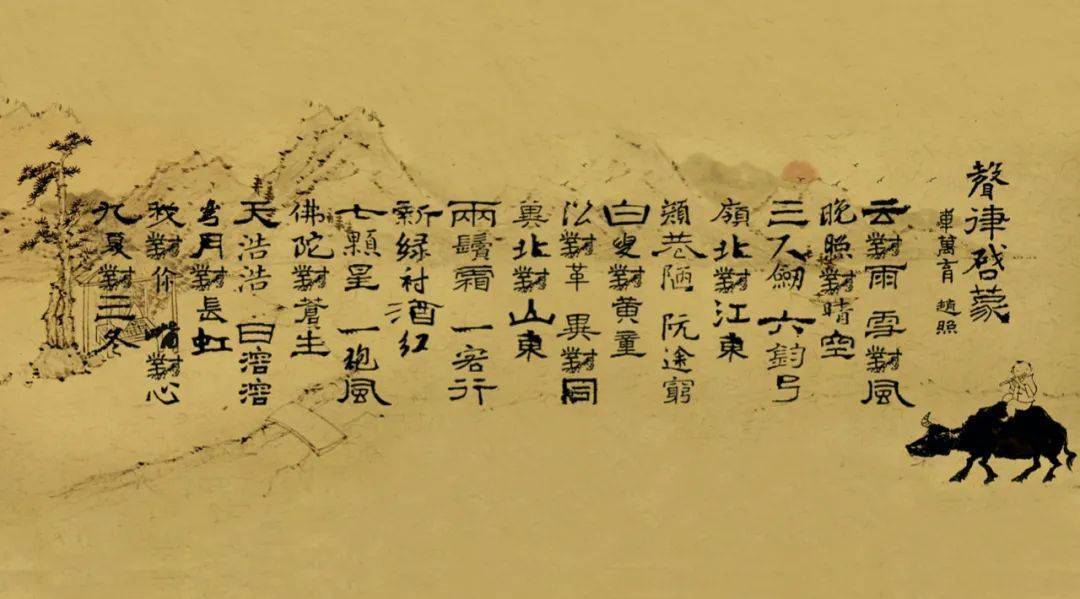 聲律啓蒙
車萬育 趙照
云對雨 雪對風
晚照對晴空
三尺劍 六鈞弓
嶺北對江東
顏巷陋 阮途窮
白叟對黃童
沿對革 異對同
冀北對山東
兩鬢霜 一客行
新綠衬酒紅
七顆星 一袍風
佛陀對蒼生
天浩浩 日溶溶
彎月對長虹
我對你 嘴對心
九夏對三冬